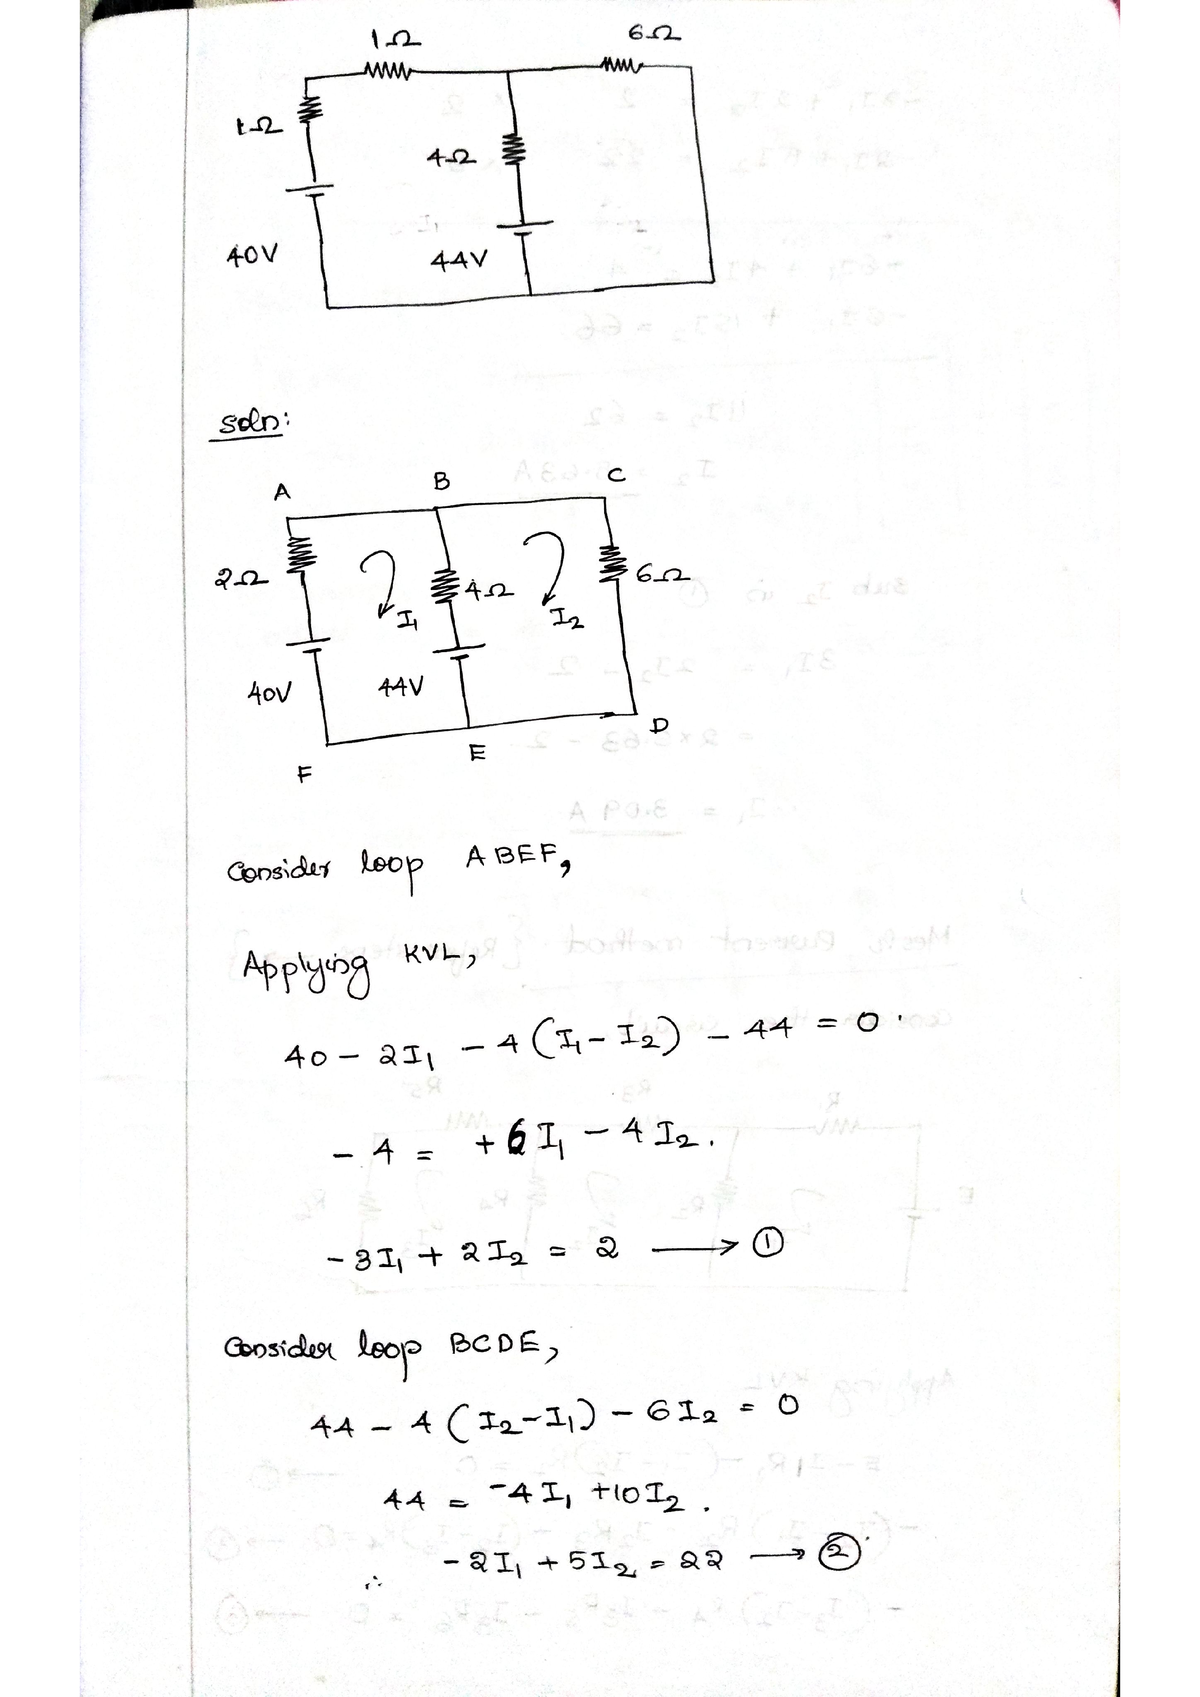 1Ω 6Ω
1Ω
4Ω
40V 44V
Soln:
A B C
2Ω 4Ω 6Ω
I₁ I₂
40V 44V
D
E
F
Consider loop ABEF,
Applying KVL,
40 - 2I₁ - 4(I₁ - I₂) - 44 = 0.
- 4 = + 6I₁ - 4I₂.
- 3I₁ + 2I₂ = 2 → ①
Consider loop BCDE,
44 - 4(I₂-I₁) - 6I₂ = 0
44 = -4I₁ +10I₂.
∴ - 2I₁ + 5I₂ = 22 → ②